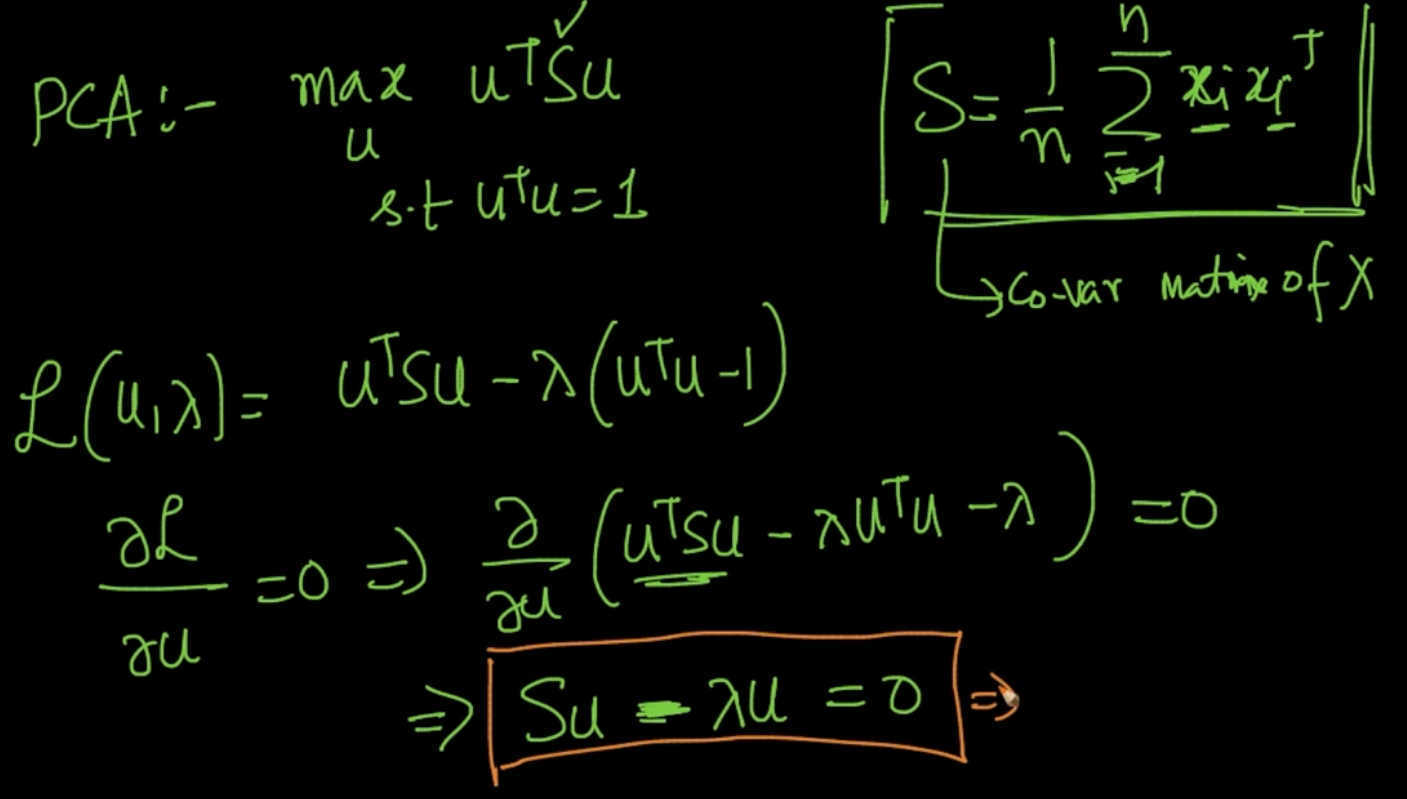 PCA:- max uᵀSu
u
s.t uᵀu = 1
S = 1/n Σ xᵢ xᵢᵀ
n
i=1
→ Co-var matrix of X
ℒ(u, λ) = uᵀSu - λ(uᵀu - 1)
∂ℒ/∂u = 0 ⇒ ∂/∂u (uᵀSu - λuᵀu - λ) = 0
⇒ Su - λu = 0 ⇒